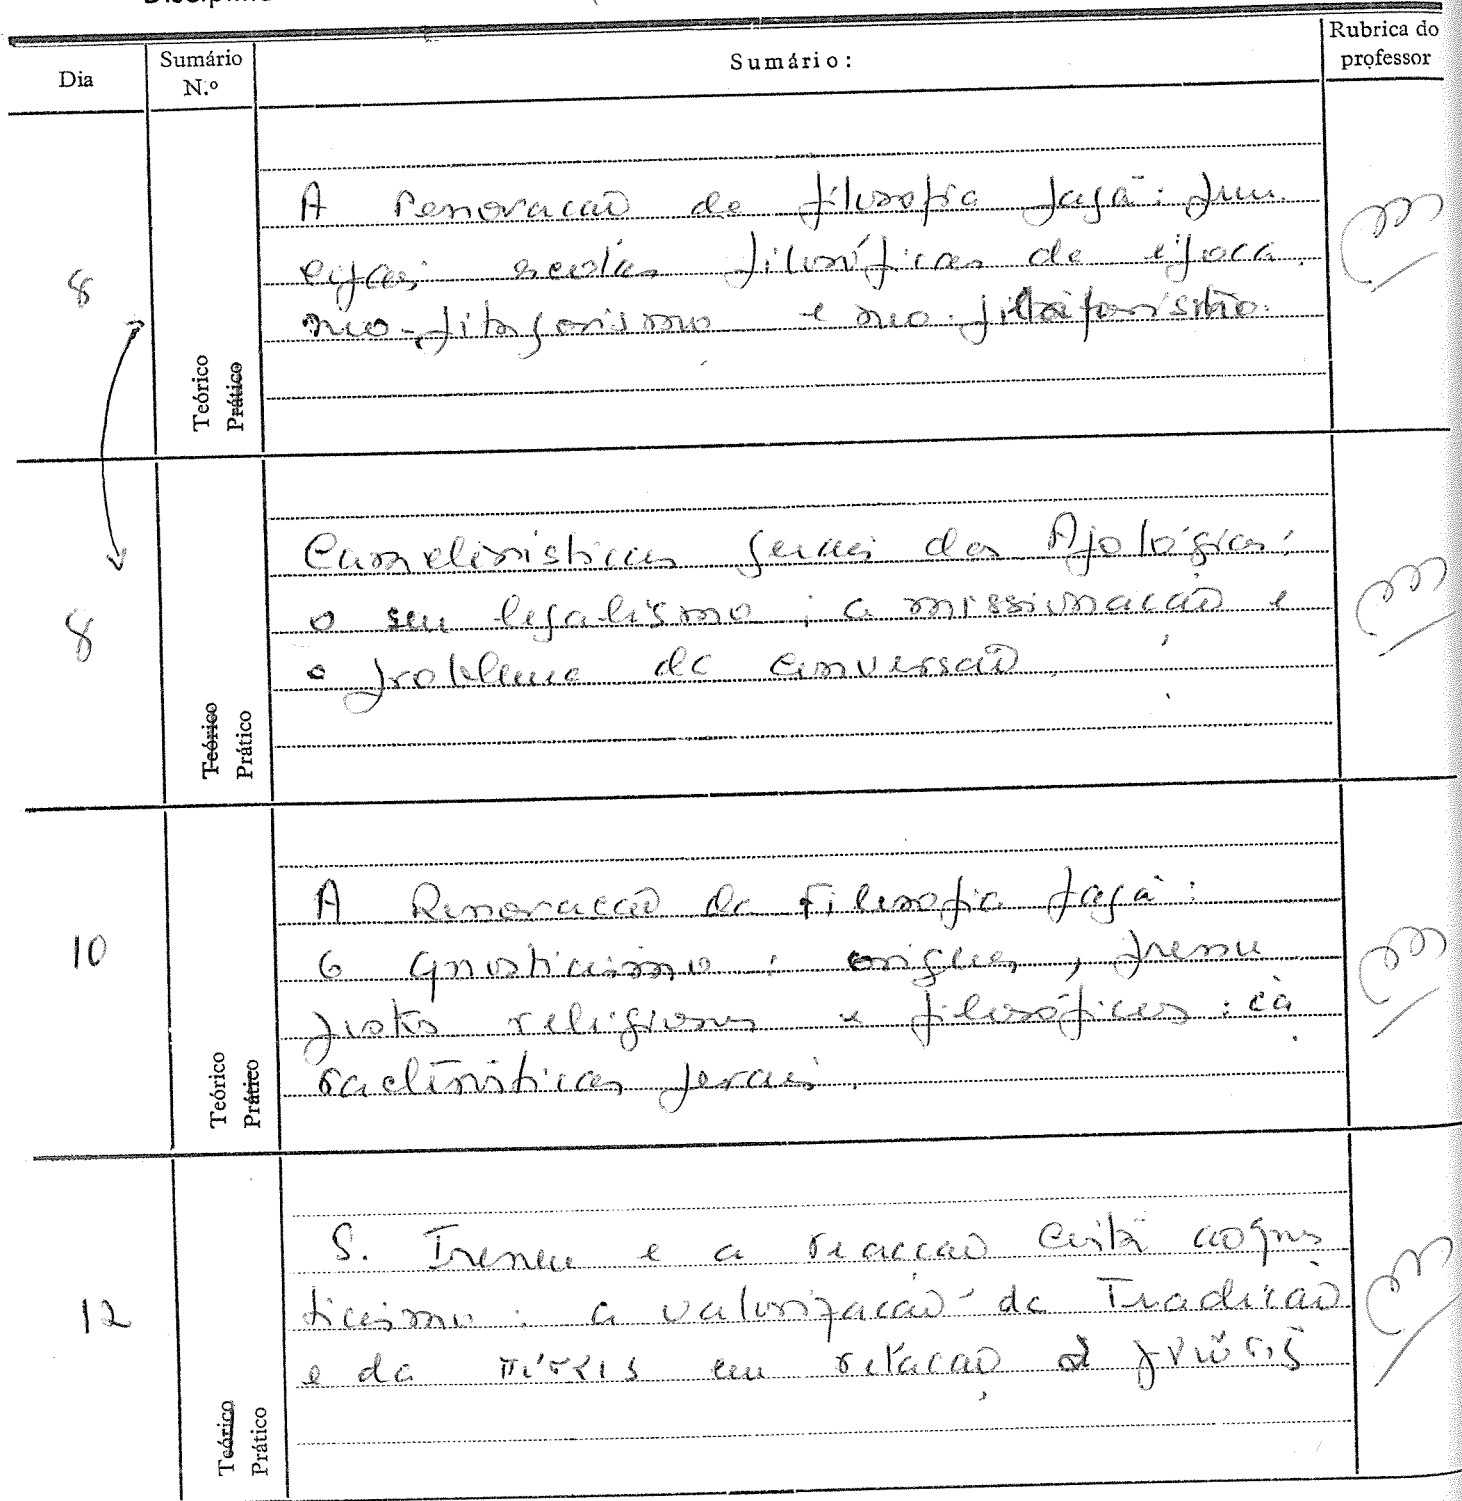 Dia
Sumário
N.º
Sumário:
Rubrica do
professor
8
Teórico
Prático
A renovação da filosofia pagã: prin
cipais escolas filosóficas da época.
neo-pitagorismo e neo-
8
Teórico
Prático
Características gerais dos Apológicos:
o seu legalismo; a missionação e
o problema da conversão.
10
Teórico
Prático
A Renovação da Filosofia pagã:
O Gnosticismo: origens, pressu
postos religiosos e filosóficos: ca
racterísticas gerais.
12
Teórico
Prático
S. Ireneu e a reacção cristã ao gnos
ticismo: a valorização da Tradição
e da πίστις em relação à γνῶσις